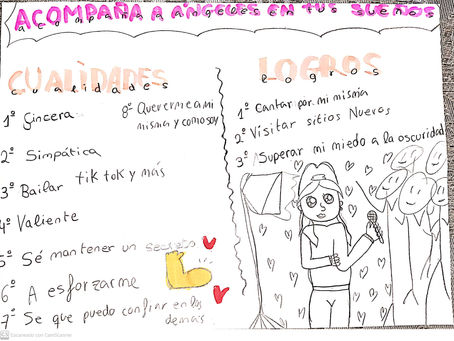 ACOMPAÑA A ÁNGELES EN TUS SUEÑOS
CUALIDADES
cualidades
1º Sincera
2º Simpática
3º Bailar tik tok y más
4º Valiente
5º Sé mantener un secreto
6º A esforzarme
7º Se que puedo confiar en los
demás
8º Quererme a mi
misma y como soy
LOGROS
logros
1º Cantar por mi misma
2º Visitar sitios Nuevos
3º Superar mi miedo a la oscuridad
Escaneado con CamScanner